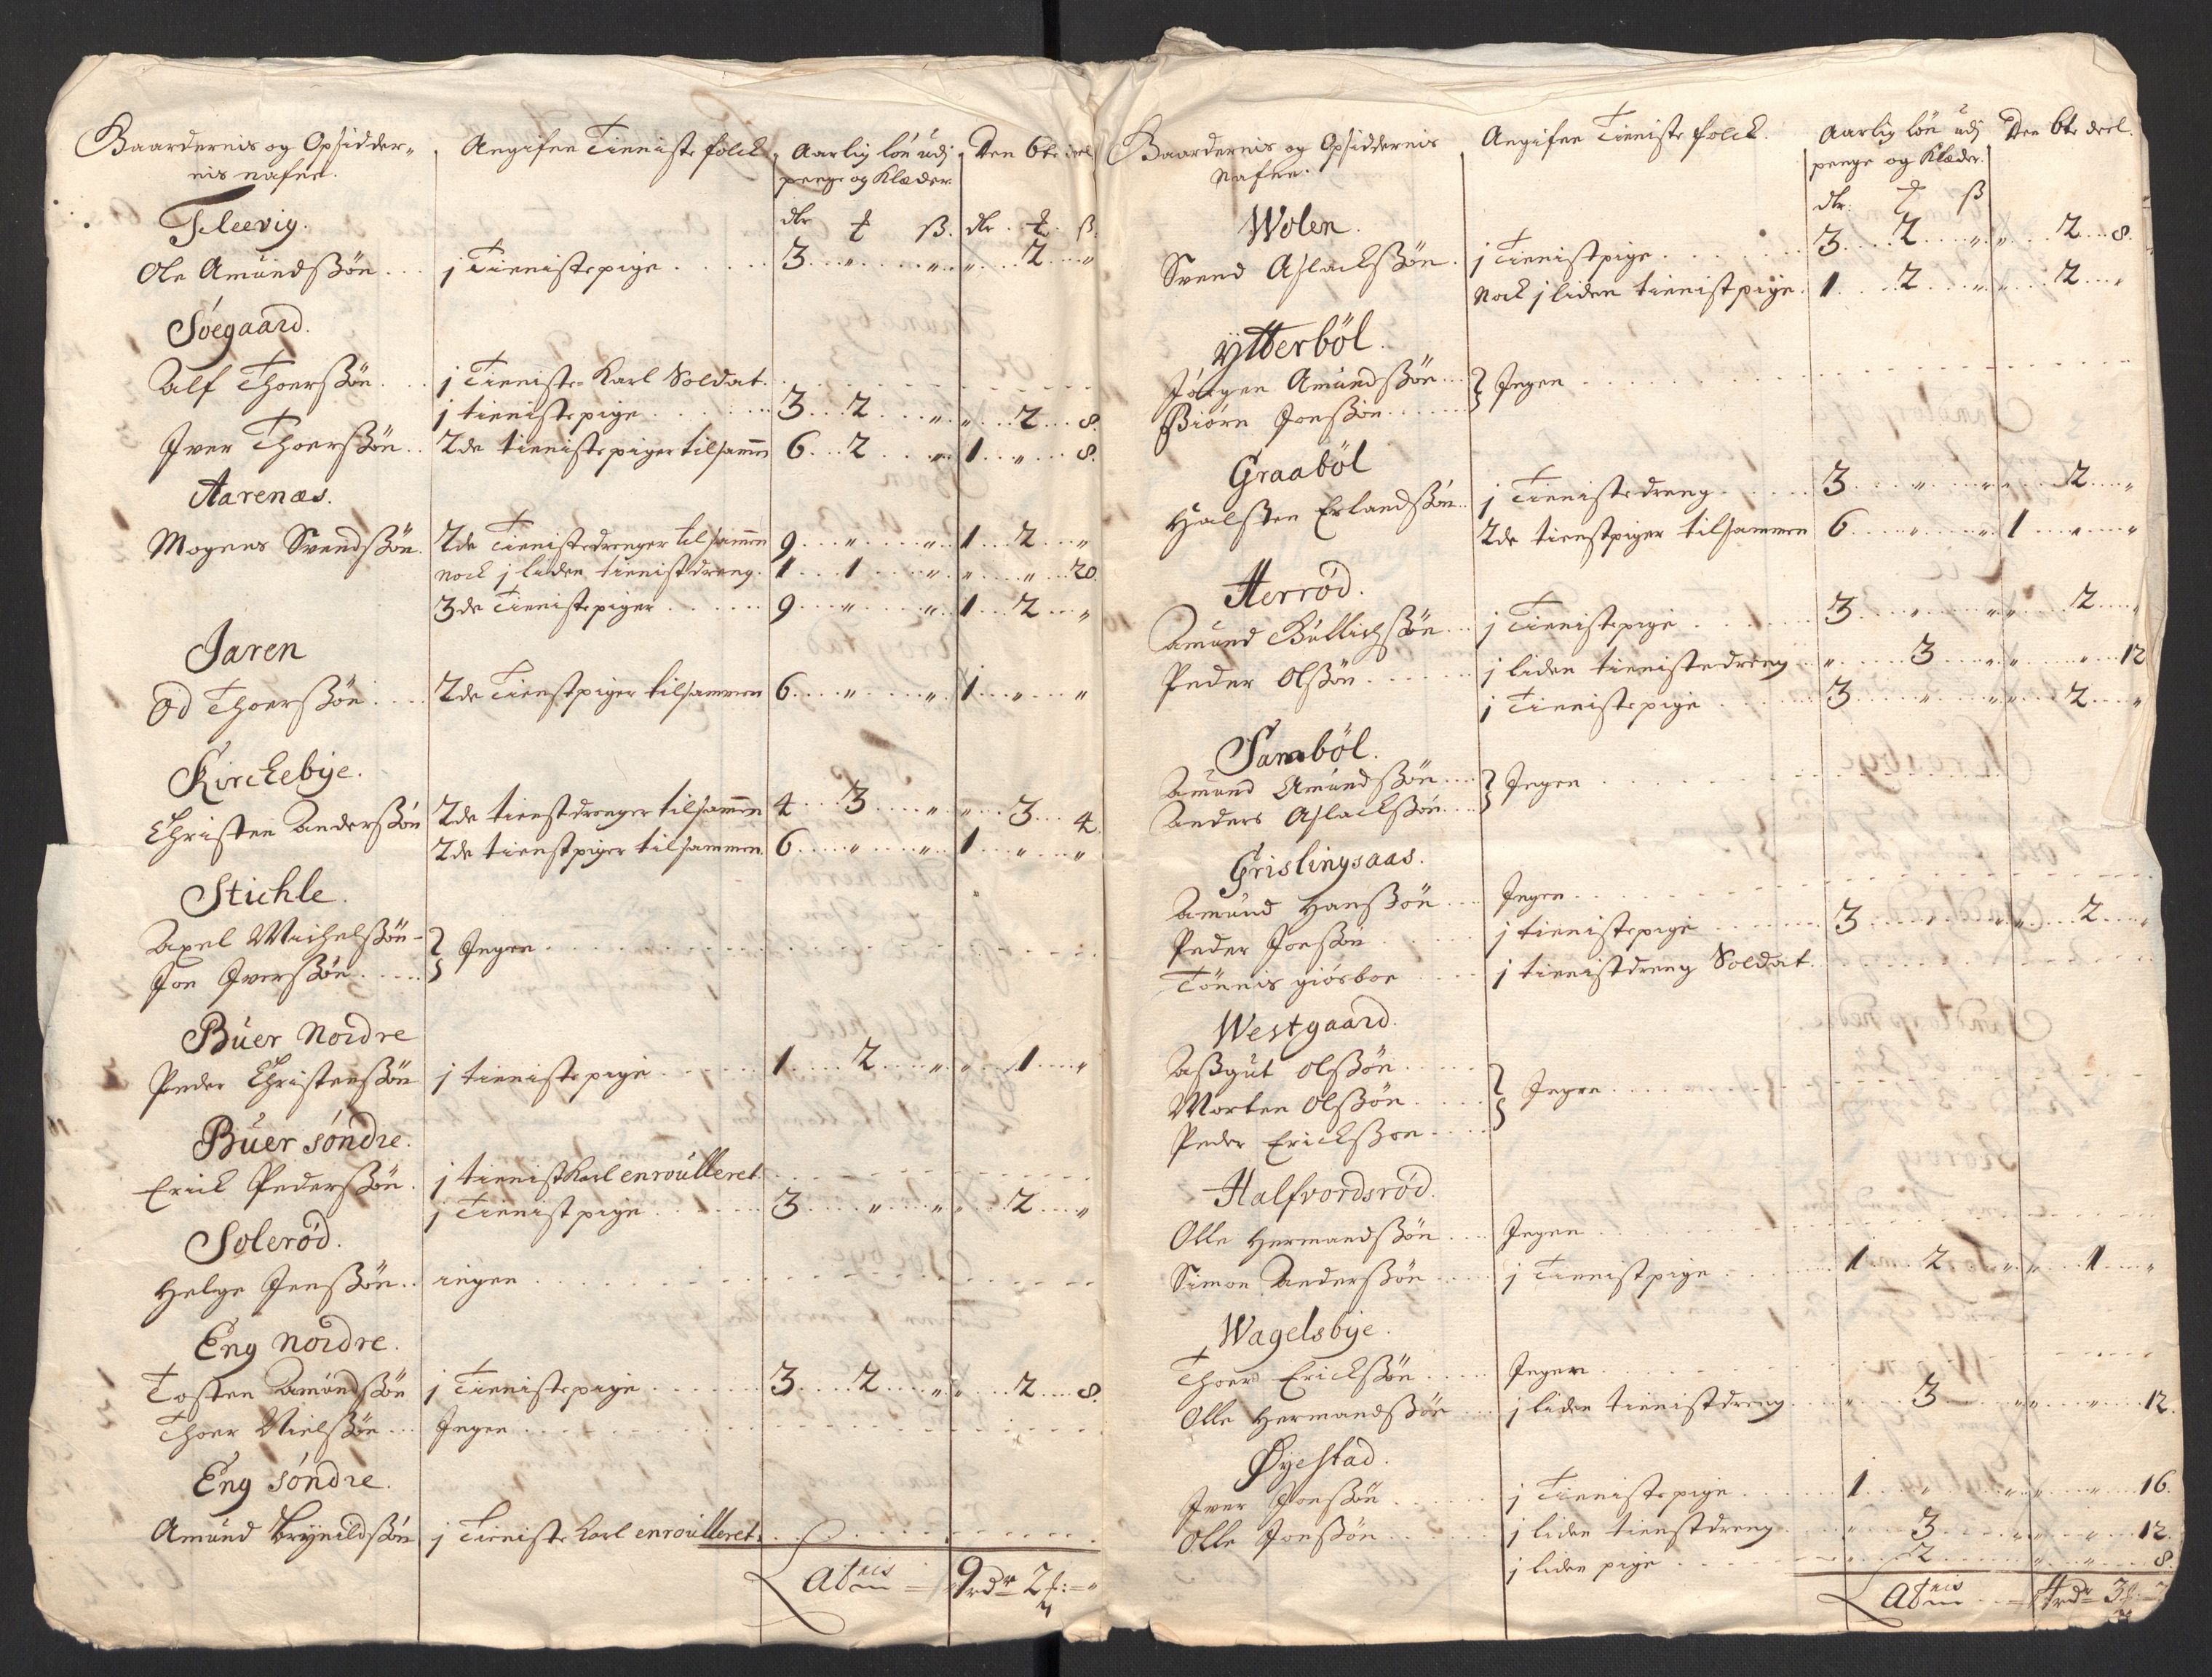 Gaardernis og Opsidder-
nis nafne.
Angifne Tieniste folck
Aarlig løn udj
penge og Klæder
Den 6te deel
dlr ₰ ß. dlr. ₰. ß.
Fleevig.
Ole Amundßøn ... j Tienistepige ..... 3 .. " .. " .. " .. 2 .. "
Søegaard.
Alf Thoerßøn .. j Tieniste-Karl Soldat.
j tienistepige ..... 3 .. 2 .. " .. " .. 2 .. 8.
Iver Thoerßøn .. 2de tienistepiger tilsamm 6 .. 2 .. " .. 1 .. " .. 8.
Aarenæs.
Mogens Svendßøn. 2de Tienistedrenger tilsammen 9 .. " .. " .. 1 .. 2 .. "
nock j liden tienistdreng. 1 .. 1 .. " .. " .. " .. 20.
3de Tienistepiger ..... 9 .. " .. " .. 1 .. 2 .. "
Jaren
Od Thoerßøn .... 2de Tienstpiger tilsammen 6 .. " .. " .. 1 .. " .. "
Kirckebye.
Christen Anderßøn 2de tienstdrenger tilsammen 4 .. 3 .. " .. " .. 3 .. 4.
2de tienstpiger tilsammen. 6 .. " .. " .. 1 .. " .. "
Stichle.
Axel Michelßøn-
Jon Iverßøn .... } Ingen ..........
Buer Nordre
Peder Christenßøn j tienistepige ..... 1 .. 2 .. " .. " .. 1 .. "
Buer søndre.
Erick Pederßøn. j tienistkarl enroulleret.
j Tienistpige ..... 3 .. " .. " .. " .. 2 .. "
Solerød.
Helge Jenßøn .. ingen ..........
Eng nordre.
Tosten Amundßøn j Tienistepige ..... 3 .. 2 .. " .. " .. 2 .. 8.
Thoer Nielßøn ... Ingen ..........
Eng søndre.
Amund Brynildßøn j Tieniste karl enroulleret.
Latris = 9 rdr 2 ₰: = "
Gaardernis og Opsiddernis
Nafne.
Angifne Tieniste folck.
Aarlig løn udj
penge og Klæder.
Den 6te deel.
dlr: ₰ ß
Wolen.
Svend Aslackßøn. j Tienistpige ..... 3 .. 2 .. " .. " .. 2 .. 8.
Nock j liden tienistpige. 1 .. 2 .. " .. " .. 2 .. "
Ytterböl.
Jørgen Amundßøn ...
Biørn Jonßøn ..... } Ingen ..........
Graaböl
Halsten Erlandßøn .. j Tienistedreng ..... 3 .. " .. " .. " .. 2 .. "
2de tienstpiger tilsammen 6 .. " .. " .. 1 .. " .. "
Herrød.
Amund Gullichßøn ... j Tienistepige ..... 3 .. " .. " .. " .. 2 .. "
Peder Olßøn ..... j liden tienistedreng .. " .. 3 .. " .. " .. " .. 12
j Tienistepige ..... 3 .. " .. " .. " .. 2 .. "
Samböl.
Amund Amundßøn ...
Anders Aslackßøn .. } Ingen ..........
Grislingsaas.
Amund Hanßøn ... Ingen ..........
Peder Jonßøn ..... j tienistepige ..... 3 .. " .. " .. " .. 2 .. "
Tönnis giösboe .... j tienistdreng Soldat.
Westgaard.
Aßgut Olßøn .....
Morten Olßøn .....
Peder Erickßøn ..... } Ingen ..........
Halfvordsrød.
Olle Hermandßøn .... Ingen ..........
Simon Anderßøn ..... j Tienistpige ..... 1 .. 2 .. " .. " .. 1 .. "
Wagelsbye.
Thoer Erickßøn ..... Ingen ..........
Olle Hermandßøn .... j liden tienistdreng .. " .. 3 .. " .. " .. " .. 12.
Øyestad.
Iver Jonßøn ..... j Tienistepige ..... 1 .. " .. " .. " .. " .. 16.
Olle Jonßøn ..... j liden tienstdreng .. " .. 3 .. " .. " .. " .. 12.
j liden pige ..... " .. 2 .. " .. " .. " .. 8.
Latris = 4 rdr 3 ₰: =